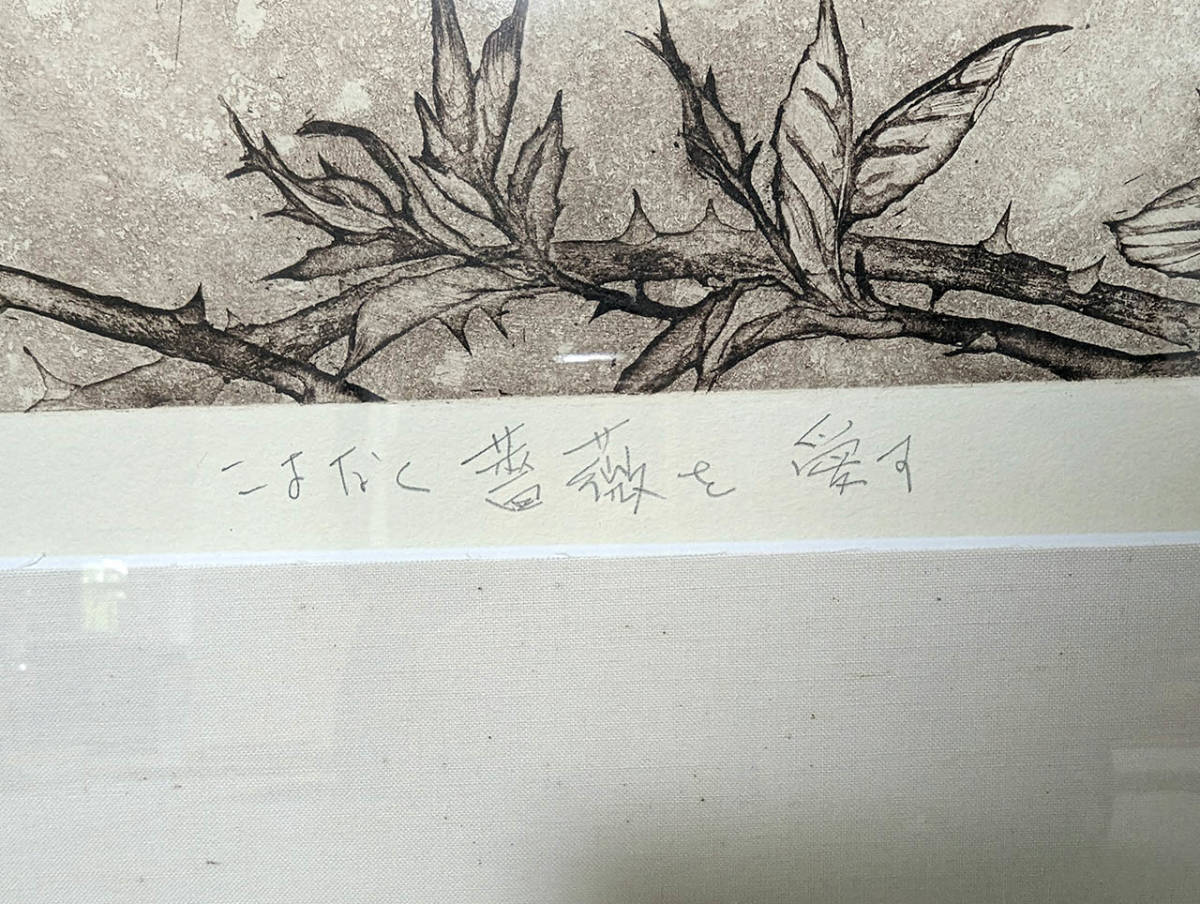 こよなく薔薇を愛す